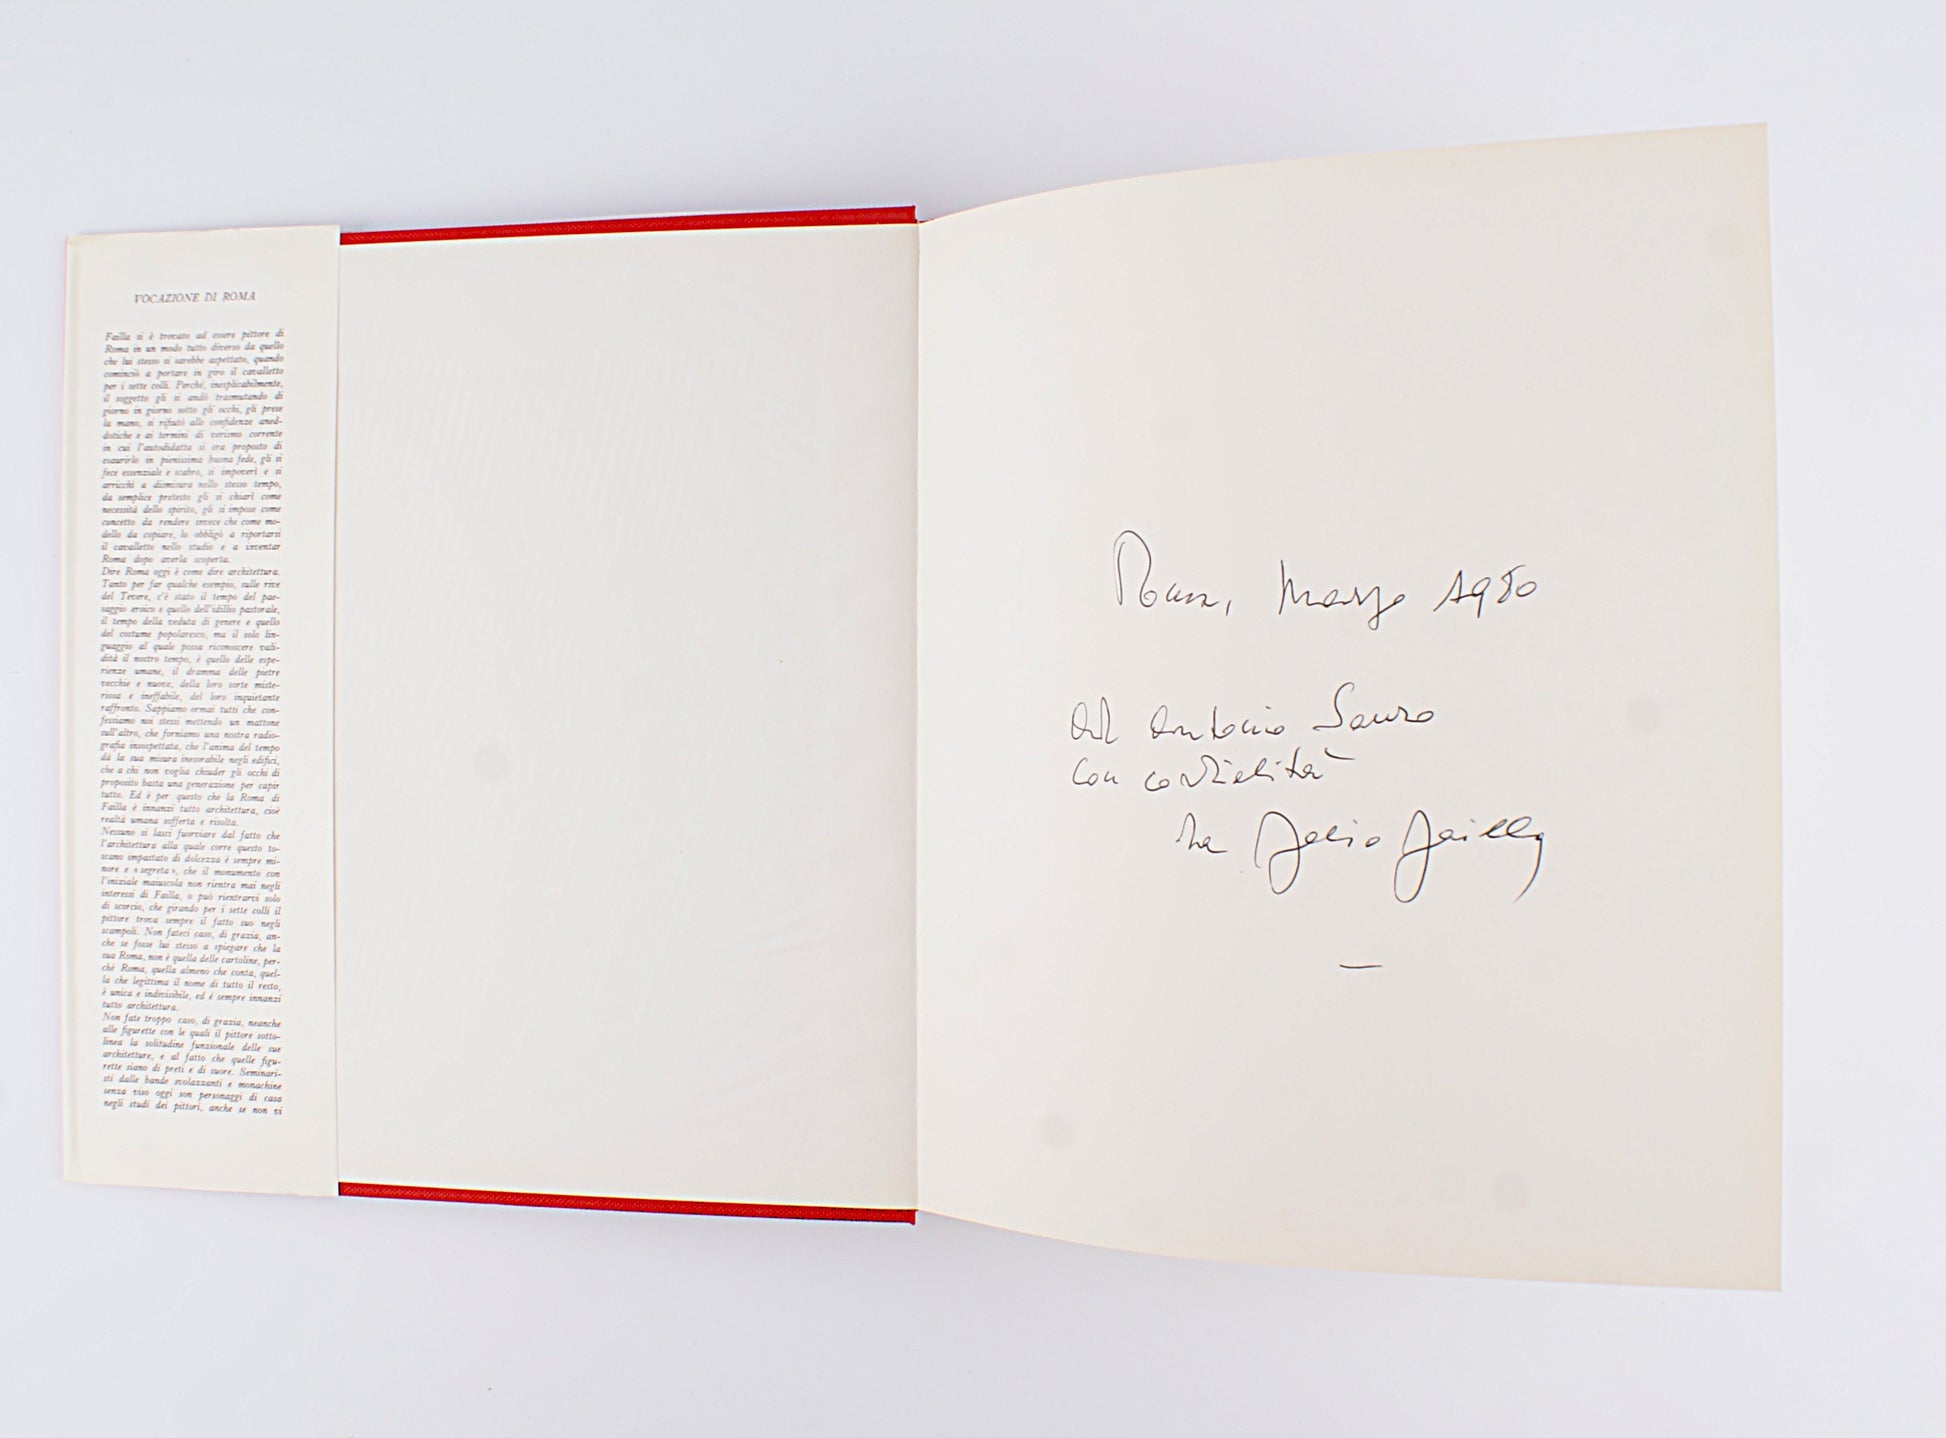 VOCAZIONE DI ROMA
Failla si è trovato ad essere pittore di
Roma in un modo tutto diverso da quello
che lui stesso si sarebbe aspettato, quando
cominciò a portare in giro il cavalletto
per i sette colli. Perché, inesplicabilmente,
il soggetto gli si andò trasmutando di
giorno in giorno sotto gli occhi, gli prese
la mano, si rifiutò alle confidenze aned-
dotiche e ai termini di verismo corrente
in cui l'autodidatta si era proposto di
esaurirlo in pienissima buona fede, gli si
fece essenziale e scabro, si impoverì e si
arricchì a dismisura nello stesso tempo,
da semplice pretesto gli si chiarì come
necessità dello spirito, gli si impose come
concetto da rendere invece che come mo-
dello da copiare, lo obbligò a riportarsi
il cavalletto nello studio e a inventar
Roma dopo averla scoperta.
Dire Roma oggi è come dire architettura.
Tanto per far qualche esempio, sulle rive
del Tevere, c'è stato il tempo del pae-
saggio eroico e quello dell'idillio pastorale,
il tempo della veduta di genere e quello
del costume popolaresco, ma il solo lin-
guaggio al quale possa riconoscere vali-
dità il nostro tempo, è quello delle espe-
rienze umane, il dramma delle pietre
vecchie e nuove, della loro sorte miste-
riosa e ineffabile, del loro inquietante
raffronto. Sappiamo ormai tutti che con-
fessiamo noi stessi mettendo un mattone
sull'altro, che forniamo una nostra radio-
grafia insospettata, che l'anima del tempo
dà la sua misura inesorabile negli edifici,
che a chi non voglia chiuder gli occhi di
proposito basta una generazione per capir
tutto. Ed è per questo che la Roma di
Failla è innanzi tutto architettura, cioè
realtà umana sofferta e risolta.
Nessuno si lasci fuorviare dal fatto che
l'architettura alla quale corre questo to-
scano impastato di dolcezza è sempre mi-
nore e « segreta », che il monumento con
l'iniziale maiuscola non rientra mai negli
interessi di Failla, o può rientrarvi solo
di scorcio, che girando per i sette colli il
pittore trova sempre il fatto suo negli
scampoli. Non fateci caso, di grazia, an-
che se fosse lui stesso a spiegare che la
sua Roma, non è quella delle cartoline, per-
chè Roma, quella almeno che conta, quel-
la che legittima il nome di tutto il resto,
è unica e indivisibile, ed è sempre innanzi
tutto architettura.
Non fate troppo caso, di grazia, neanche
alle figurette con le quali il pittore sotto-
linea la solitudine funzionale delle sue
architetture, e al fatto che quelle figu-
rette siano di preti e di suore. Seminari-
sti dalle bande svolazzanti e monachine
senza viso oggi son personaggi di casa
negli studi dei pittori, anche se non vi
Roma, Marzo 1980
Ad Antonio Sauro
con cordialità
Failla